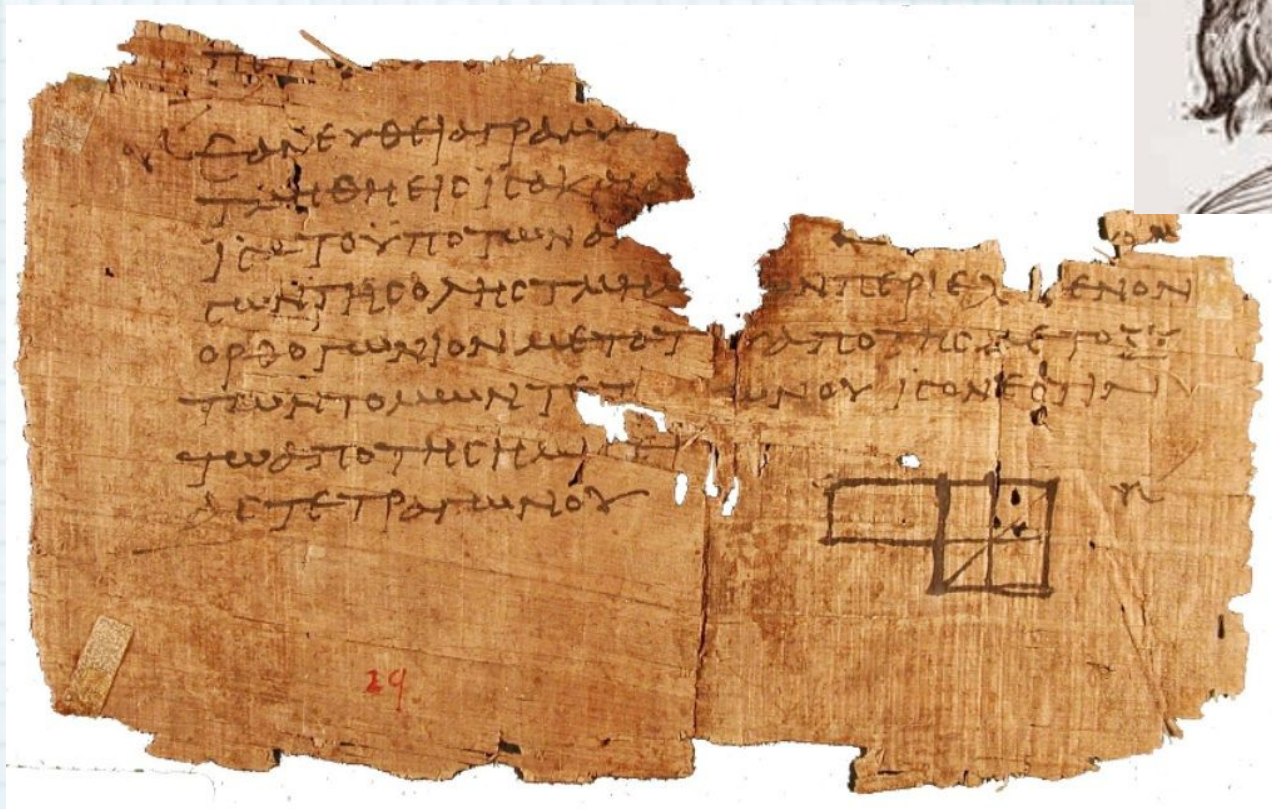 ΕΑΝ ΕΥΘΕΙΑ ΓΡΑΜΜ
ΤΜΗΘΗ ΕΙΣ ΙΣΑ Κ
ΙΣΑ ΤΟ ΥΠΟ ΤΩΝ Α
ΣΩΝ ΤΗΣ ΟΛΗΣ ΤΜΗΜ ΩΝ ΠΕΡΙΕΧ ΕΝΟΝ
ΟΡΘΟΓΩΝΙΟΝ ΜΕΤΑ Τ ΑΠΟ ΤΗΣ ΜΕΤΟΞΥ
ΤΩΝ ΤΟΜΩΝ ΤΕΤ ΩΝΟΥ ΙΣΟΝ ΕΣΤΙΝ
ΤΩ ΑΠΟ ΤΗΣ ΗΜΙ
ΑΣ ΤΕΤΡΑΓΩΝΟΥ
29